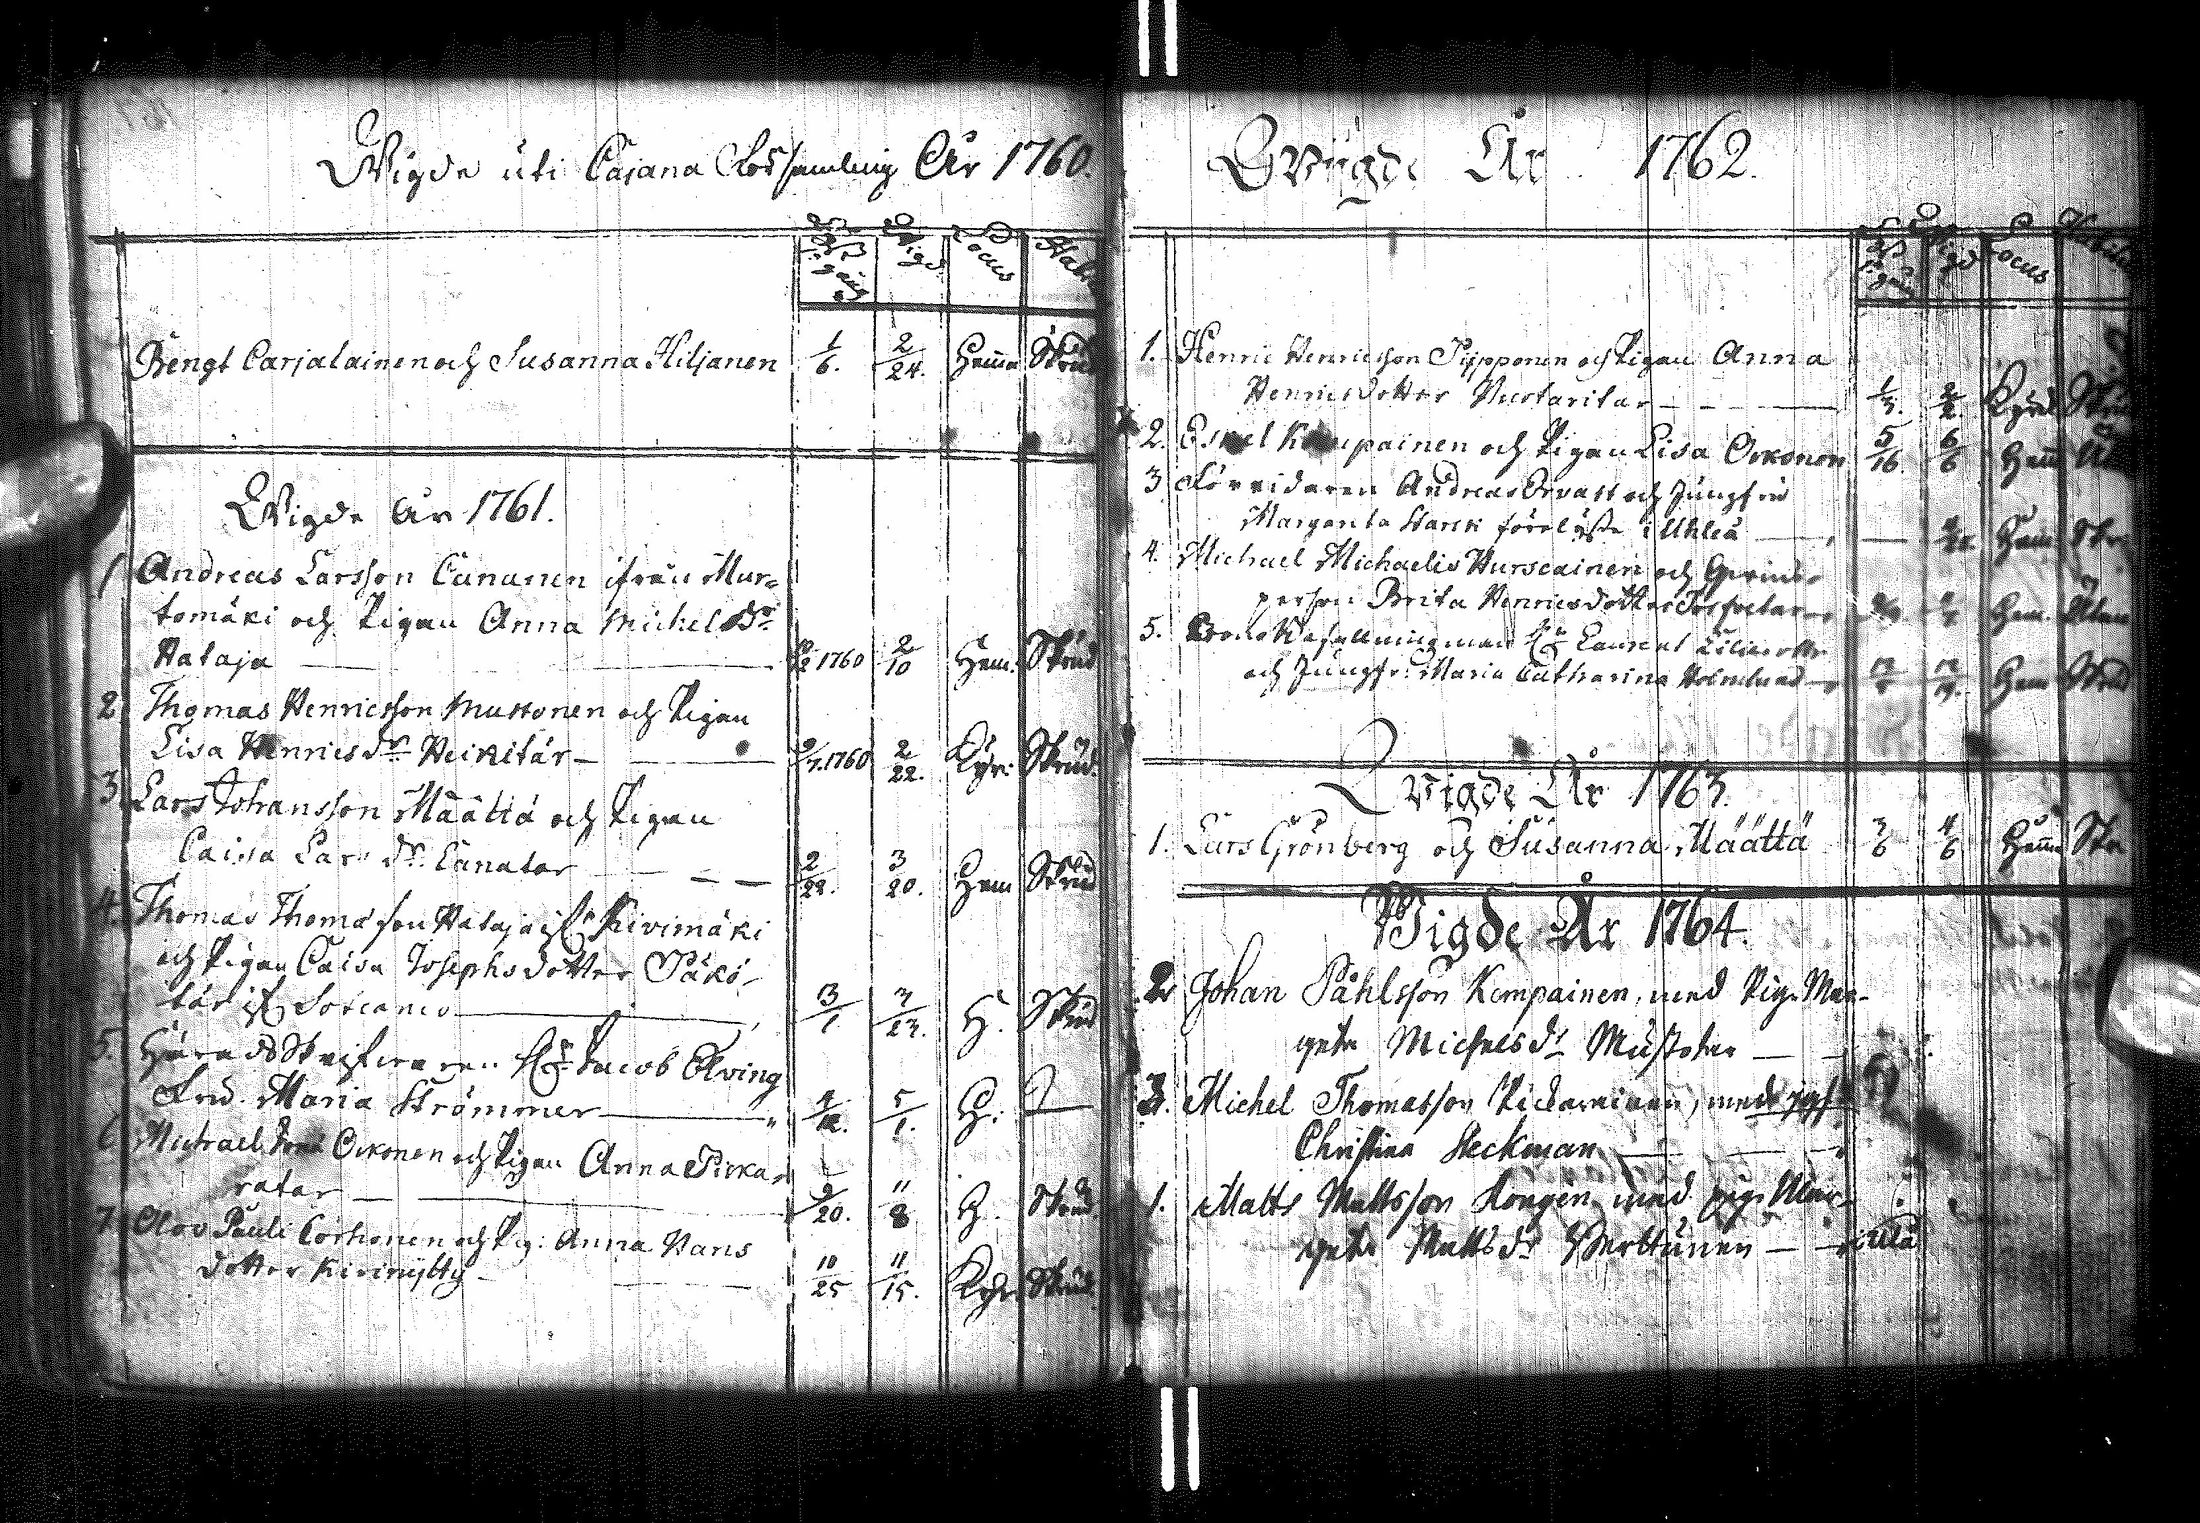 Wigde uti Cajana Församling År 1760.
Lysning Wigd Locus Habit
Bengt Carjalainen och Susanna Hiljanen 1/6. 2/24. Hemma Skrud
Wigde År 1761.
1 Andreas Larsson Cananen ifrån Mur=
tomäki och Pigan Anna Michelsdr
Hataja 2/10 Hem. Skrud
2 Thomas Henricsson Mustonen och Pigan
Lisa Henricsdr Heikitär 1760 2/22. Kyrk: Skrud.
3 Lars Johansson Määttä och Pigan
Caisa Lars dr Canatar 2/22. 3/20. Hem Skrud
4. Thomas Thomasson Hataja ifr Kivimäki
och Pigan Caisa Josephsdotter Päkö-
tär ifr Sotcamo 3/1 H. Skrud
5. Härads Skrifvaren Hr Jacob Elving
Frw. Maria Strömmer 5/1. H.
6 Michael Oikonen och Pigan Anna Picka-
ratar 9/20. 11/8 H. Skrud.
7. Olov Pauli Corhonen och Pig: Anna Hans
dotter Kirimytty 10/25 11/15. Kyrk Skrud.
Wigde År 1762.
Lysning Wigd Locus Habit
1. Henric Henricsson Piipponen och Pigan Anna
Henricsdotter Vuotaritar Kyrk
2. Eskel Kempainen och Pigan Lisa Oikonen 5/16. 6/6 Hem
3 Förridaren Andreas Orvast och Jungfru
Margareta Starck förelyste i Uhleå Hem Skr
4. Michael Michaelis Hurscainen och Qvins-
person Brita Henricsdotter Hem.
5. Crono Befallningsman Hr Laurent
och Jungfr: Maria Catharina Holmlund Hem Skrud
Wigde År 1763.
1. Lars Grönberg och Susanna Määttä 3/6 4/6 Hemma Skr
Wigde År 1764.
2 Johan Påhlsson Kempainen, med Pig. Mar-
geta Michelsdr Mustotar
3. Michel Thomasson Pickarainen, med jgfr
Christina Heckman
1. Matts Mattsson Kongin, med pig. Mar-
geta Matts dr Werttunen